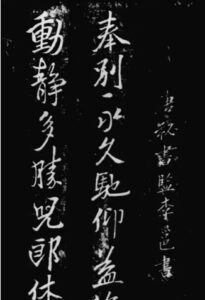 唐秘書監李邕書
奉別久馳仰益
動靜多勝兒郎休